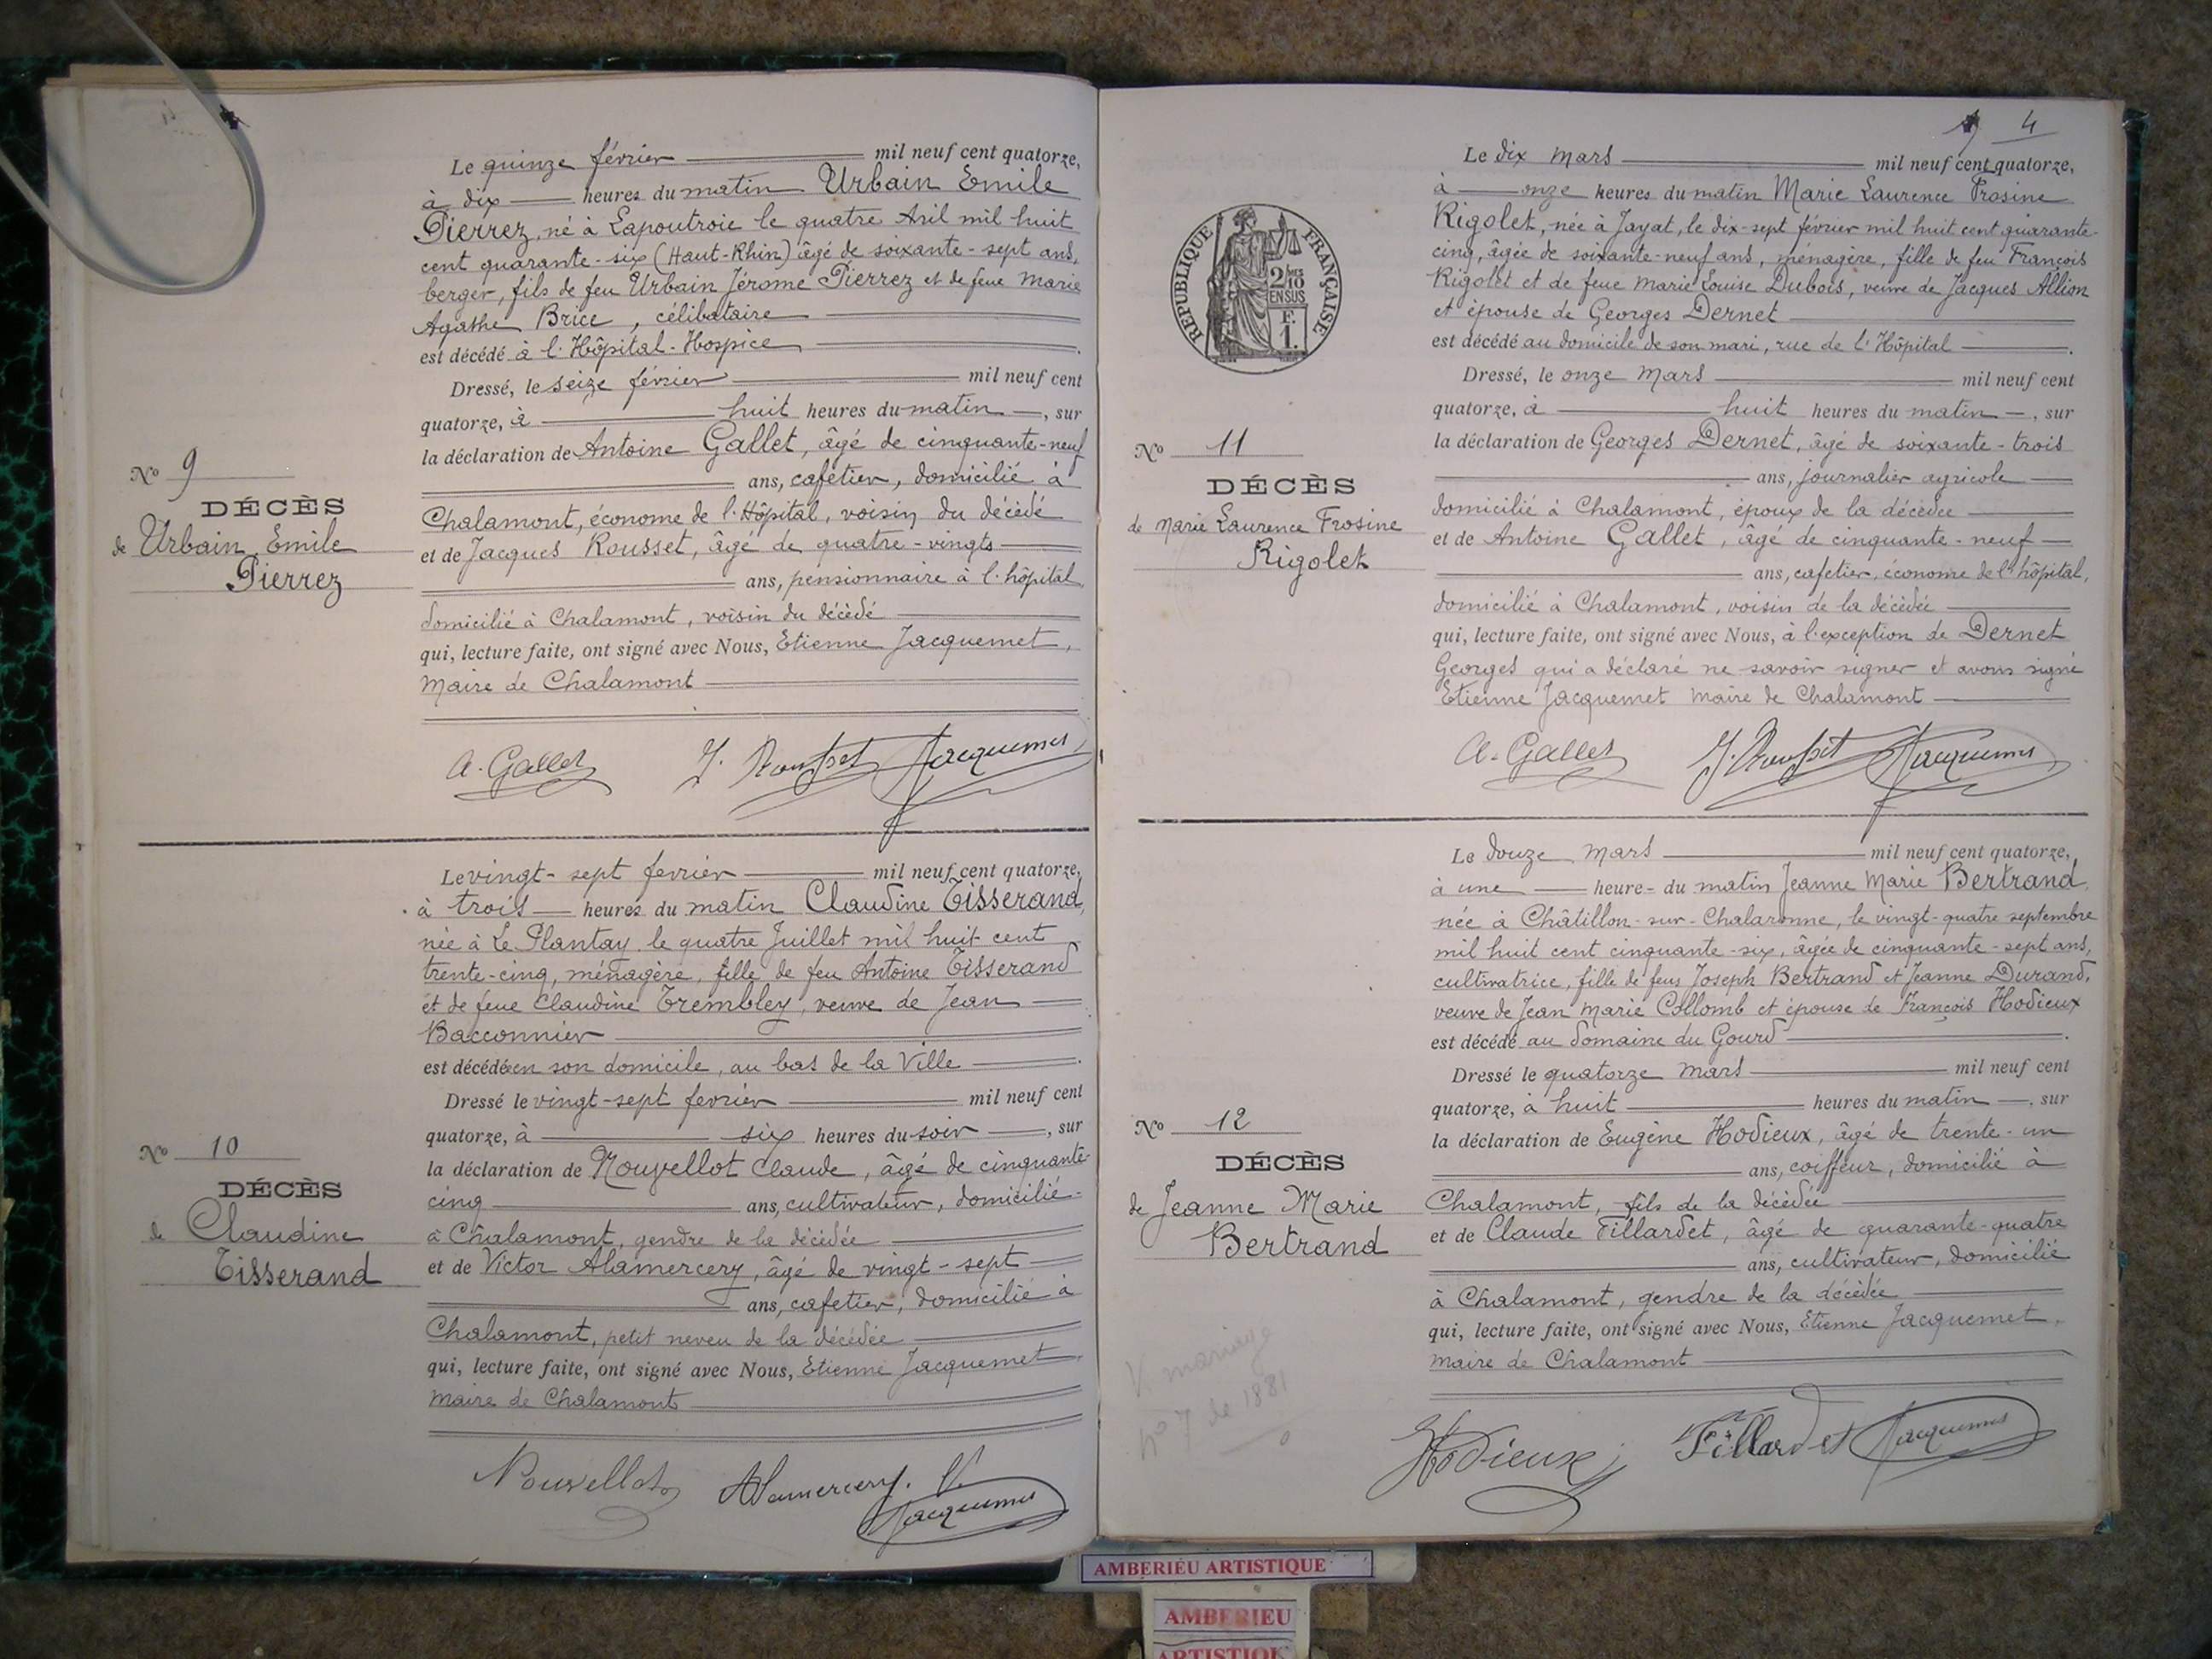 Le quinze février mil neuf cent quatorze,
à dix heures du matin Urbain Emile
Pierrez, né à Lapoutroie le quatre Avil mil huit
cent quarante-six (Haut-Rhin) âgé de soixante-sept ans,
berger, fils de feu Urbain Jérome Pierrez et de feue Marie
Agathe Brice, célibataire
est décédé à l'Hôpital-Hospice
Dressé, le seize février mil neuf cent
quatorze, à huit heures du matin, sur
la déclaration de Antoine Gallet, âgé de cinquante-neuf
ans, cafetier, domicilié à
Chalamont, économe de l'Hôpital, voisin du décédé
et de Jacques Rousset, âgé de quatre-vingts
ans, pensionnaire à l'hôpital,
domicilié à Chalamont, voisin du décédé
qui, lecture faite, ont signé avec Nous, Etienne Jacquemet,
Maire de Chalamont
A. Gallet J. Rousset Jacquemet
No 9
DÉCÈS
de Urbain Emile
Pierrez
Le vingt-sept fevrier mil neuf cent quatorze,
à trois heures du matin Claudine Tisserand,
née à Le Plantay le quatre Juillet mil huit cent
trente-cinq, ménagère, fille de feu Antoine Tisserand
et de feue Claudine Trembley, veuve de Jean
Bacconnier
est décédée en son domicile, au bas de la Ville.
Dressé le vingt-sept fevrier mil neuf cent
quatorze, à six heures du soir, sur
la déclaration de Nouvellot Claude, âgé de cinquante-
cinq ans, cultivateur, domicilié
à Chalamont, gendre de la décédée
et de Victor Alamercery, âgé de vingt-sept
ans, cafetier, domicilié à
Chalamont, petit neveu de la décédée
qui, lecture faite, ont signé avec Nous, Etienne Jacquemet
Maire de Chalamont
Nouvellot Alamercery. V. Jacquemet
No 10
DÉCÈS
de Claudine
Tisserand
4
RÉPUBLIQUE FRANÇAISE
2/10
EN SUS
F.
1.
Le dix Mars mil neuf cent quatorze,
à onze heures du matin Marie Laurence Frosine
Rigolet, née à Jayat, le dix-sept février mil huit cent quarante-
cinq, âgée de soixante-neuf ans, ménagère, fille de feu François
Rigolet et de feue Marie Louise Dubois, veuve de Jacques Allion
et épouse de Georges Dernet
est décédé au domicile de son mari, rue de l'Hôpital.
Dressé, le onze Mars mil neuf cent
quatorze, à huit heures du matin, sur
la déclaration de Georges Dernet, âgé de soixante-trois
ans, journalier agricole
domicilié à Chalamont, époux de la décédée
et de Antoine Gallet, âgé de cinquante-neuf
ans, cafetier, économe de l'hôpital,
domicilié à Chalamont, voisin de la décédée
qui, lecture faite, ont signé avec Nous, à l'exception de Dernet
Georges qui a déclaré ne savoir signer et avons signé
Etienne Jacquemet Maire de Chalamont
A. Gallet J. Rousset Jacquemet
No 11
DÉCÈS
de Marie Laurence Frosine
Rigolet
Le douze Mars mil neuf cent quatorze,
à une heure du matin Jeanne Marie Bertrand,
née à Châtillon-sur-Chalaronne, le vingt-quatre septembre
mil huit cent cinquante-six, âgée de cinquante-sept ans,
cultivatrice, fille de feus Joseph Bertrand et Jeanne Durand,
veuve de Jean Marie Collomb et épouse de François Hodieux
est décédé au domaine du Gourd.
Dressé le quatorze Mars mil neuf cent
quatorze, à huit heures du matin, sur
la déclaration de Eugène Hodieux, âgé de trente-un
ans, coiffeur, domicilié à
Chalamont, fils de la décédée
et de Claude Fillardet, âgé de quarante-quatre
ans, cultivateur, domicilié
à Chalamont, gendre de la décédée
qui, lecture faite, ont signé avec Nous, Etienne Jacquemet,
Maire de Chalamont
Hodieux Fillardet Jacquemet
No 12
DÉCÈS
de Jeanne Marie
Bertrand
V mariage
no 7 de 1881
AMBERIEU ARTISTIQUE
AMBERIEU
ARTISTIQUE